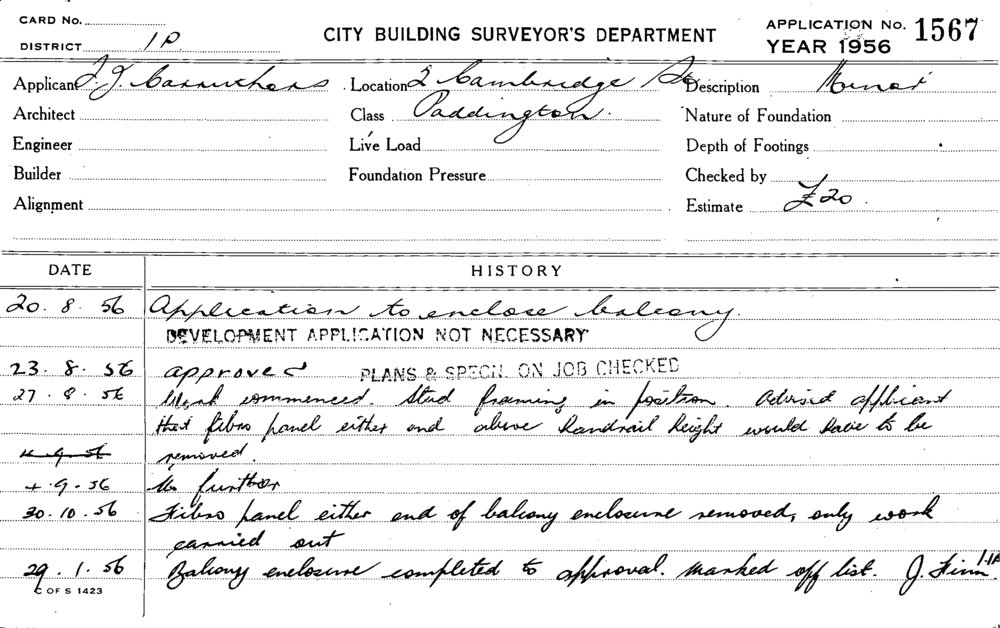 CARD No.
DISTRICT 1P
CITY BUILDING SURVEYOR'S DEPARTMENT
APPLICATION No. 1567
YEAR 1956
Applicant J. J. Carruthers Location 2 Cambridge St Description Minor
Architect Class Paddington. Nature of Foundation
Engineer Live Load Depth of Footings
Builder Foundation Pressure Checked by
Alignment Estimate £20.
DATE HISTORY
20. 8. 56 Application to enclose balcony.
DEVELOPMENT APPLICATION NOT NECESSARY
23. 8. 56 approved PLANS & SPECN. ON JOB CHECKED
27. 8. 56 Work commenced. Stud framing in position. Advised applicant
that fibro panel either end above handrail height would have to be
4. 9. 56 removed.
4. 9. 56 No further
30. 10. 56 Fibro panel either end of balcony enclosure removed, only work
carried out
29. 1. 56 Balcony enclosure completed to approval. Marked off list. J. Finn
C OF S 1423